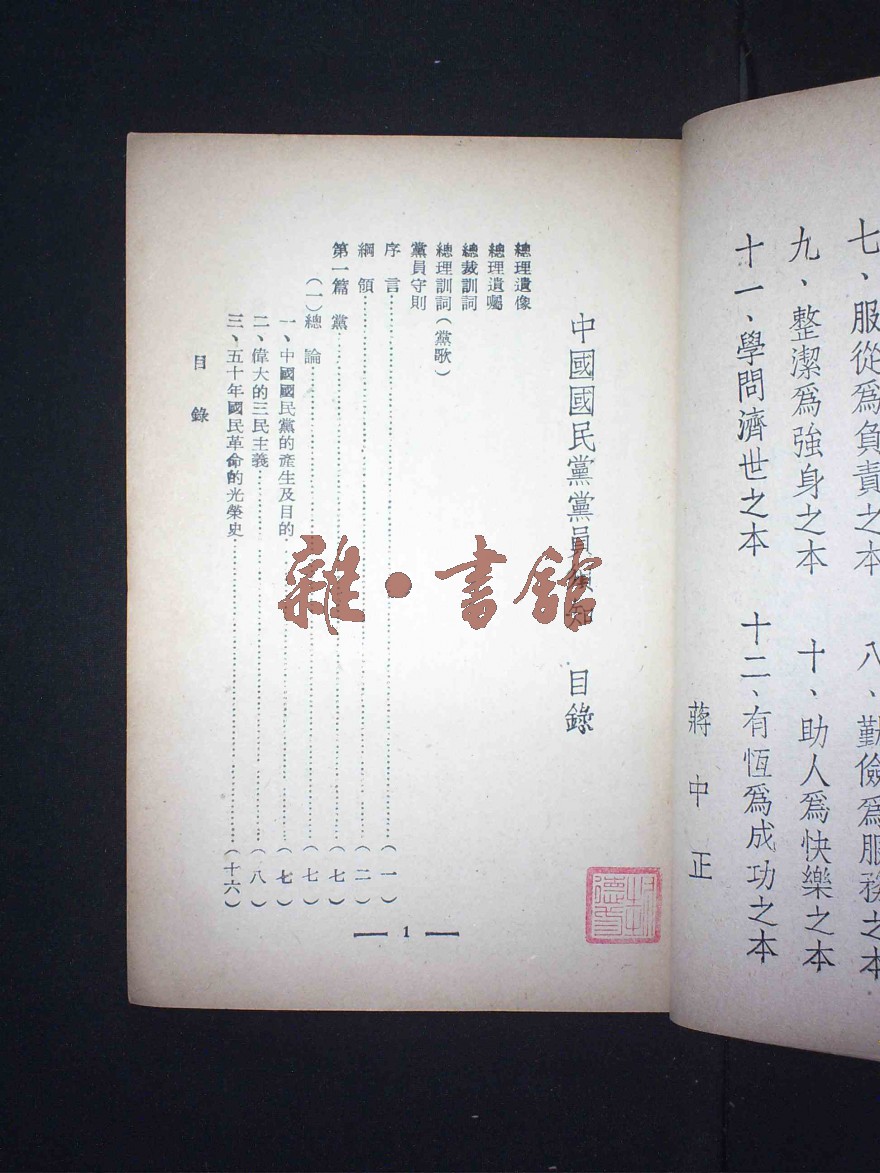 七、服從爲負責之本 八、勤儉爲服務之本
九、整潔爲強身之本 十、助人爲快樂之本
十一、學問濟世之本 十二、有恆爲成功之本
蔣中正
中國國民黨黨員須知 目錄
總理遺像
總理遺囑
總裁訓詞
總理訓詞(黨歌)
黨員守則
序言(一)
綱領(二)
第一篇 黨(七)
(一)總論(七)
一、中國國民黨的產生及目的(七)
二、偉大的三民主義(八)
三、五十年國民革命的光榮史(十六)
目錄
1
雜·書館